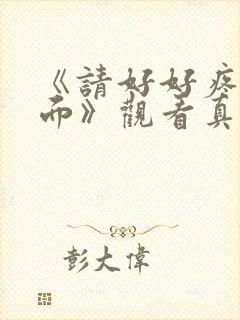 《請好好疼
而》觀看真
彭大偉